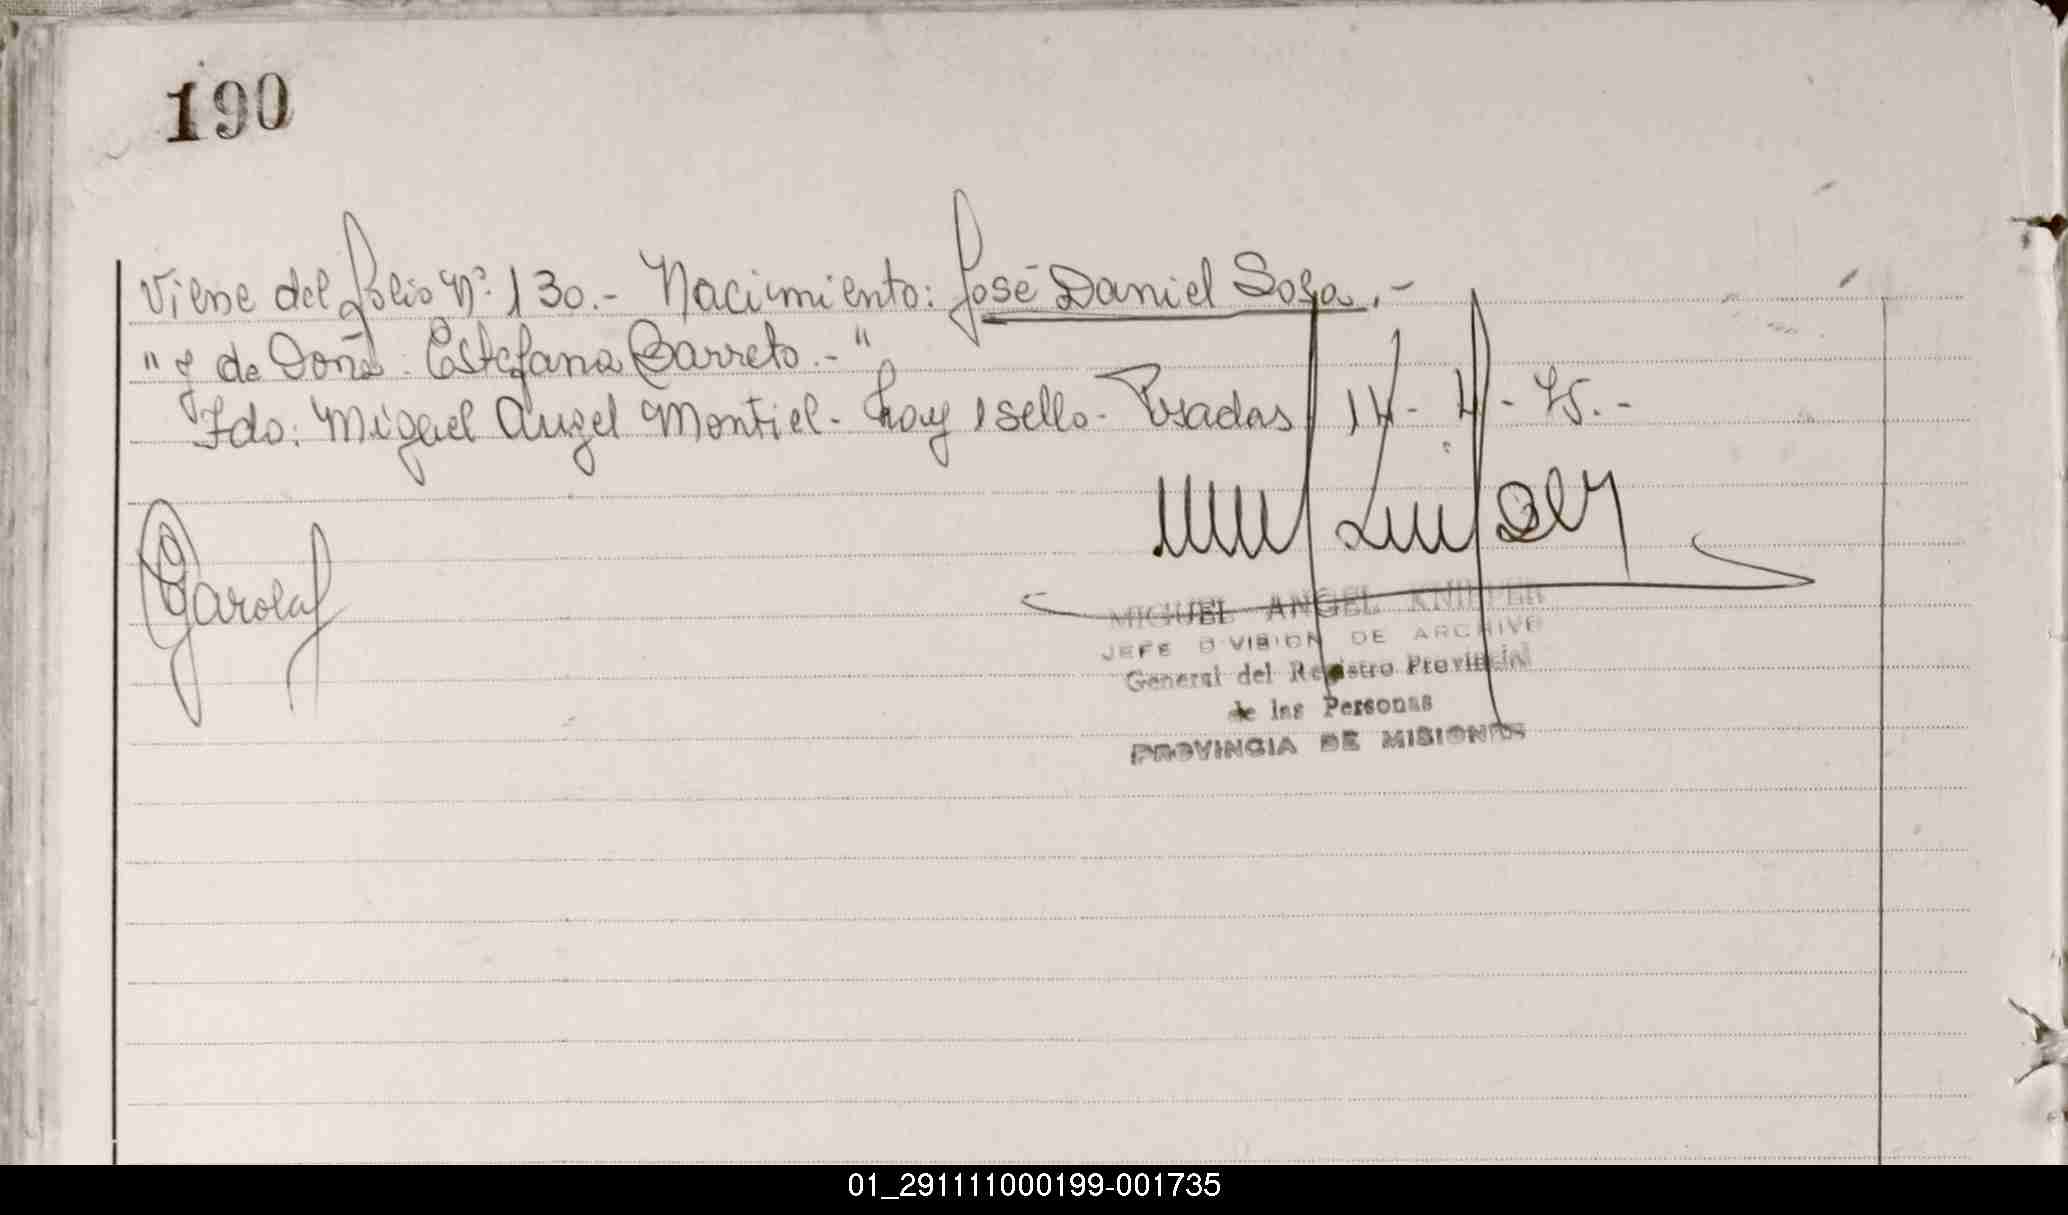 190
Viene del folio Nº 130.- Nacimiento: José Daniel Sosa.-
"y de Doña Estefana Barreto.-"
Fdo: Miguel Angel Montiel- hay 1 sello- Posadas 14-4-75.-
Garolaf
MIGUEL ANGEL KNIPPER
JEFE DIVISION DE ARCHIVO
General del Registro Provincial
de las Personas
PROVINCIA DE MISIONES
01_291111000199-001735